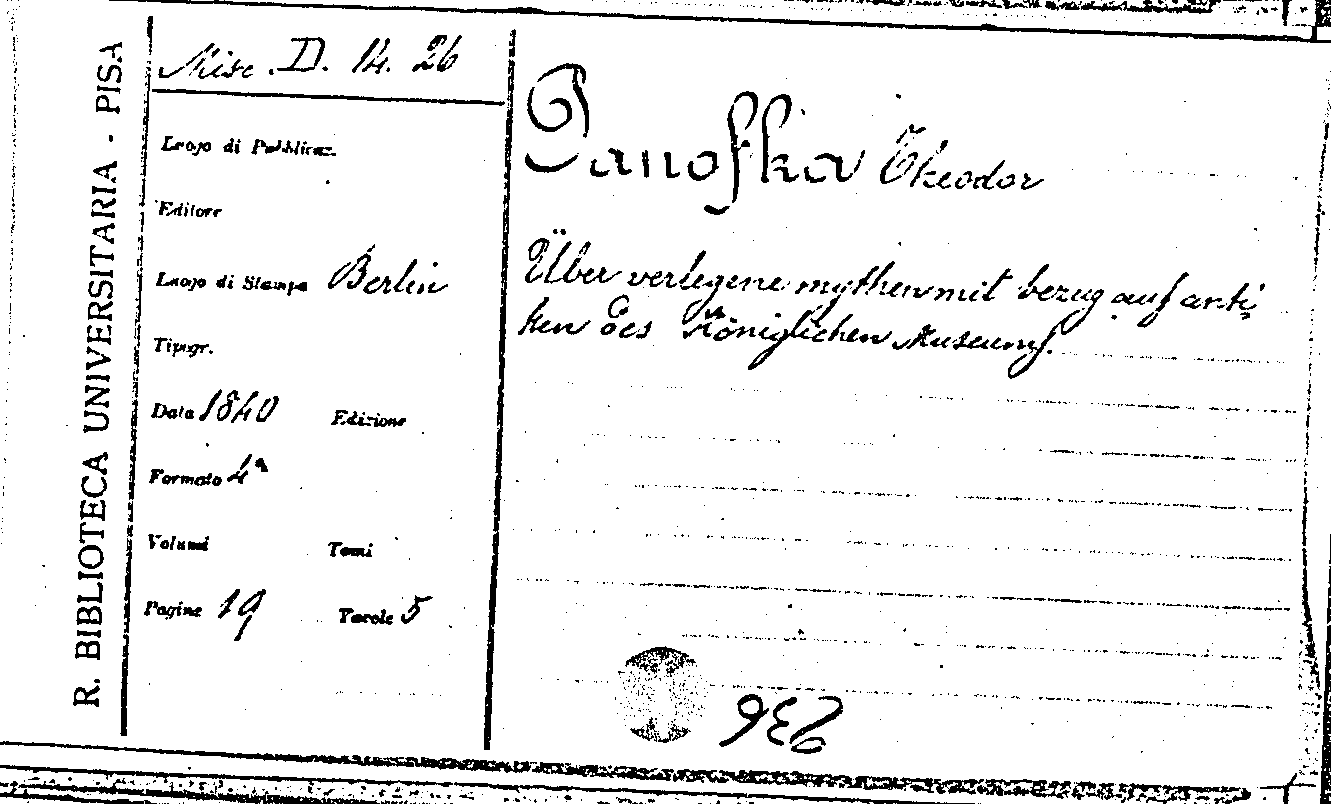 R. BIBLIOTECA UNIVERSITARIA - PISA
Misc. D. 14. 26
Luogo di Pubblicaz.
Editore
Luogo di Stampa Berlin
Tipogr.
Data 1840 Edizione
Formato 4°
Volumi Tomi
Pagine 19 Tavole 5
Panofka Theodor
Über verlegene mythen mit bezug auf anti-
ken des Königlichen Museums.